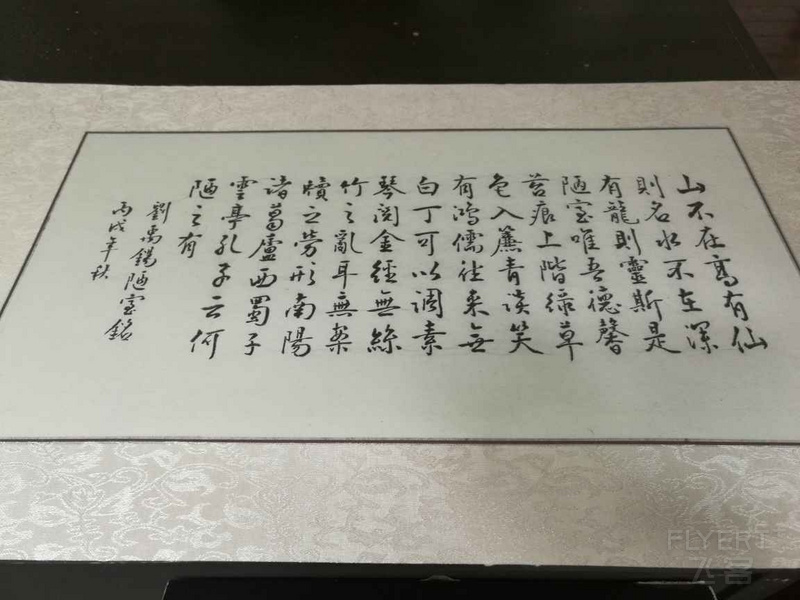 山不在高有仙
則名水不在深
有龍則靈斯是
陋室唯吾德馨
苔痕上階綠草
色入簾青談笑
有鴻儒往来無
白丁可以調素
琴閱金經無絲
竹之亂耳無案
牘之勞形南陽
諸葛廬西蜀子
雲亭孔子云何
陋之有
劉禹錫陋室銘
丙戌年秋
FLYERT
飞客